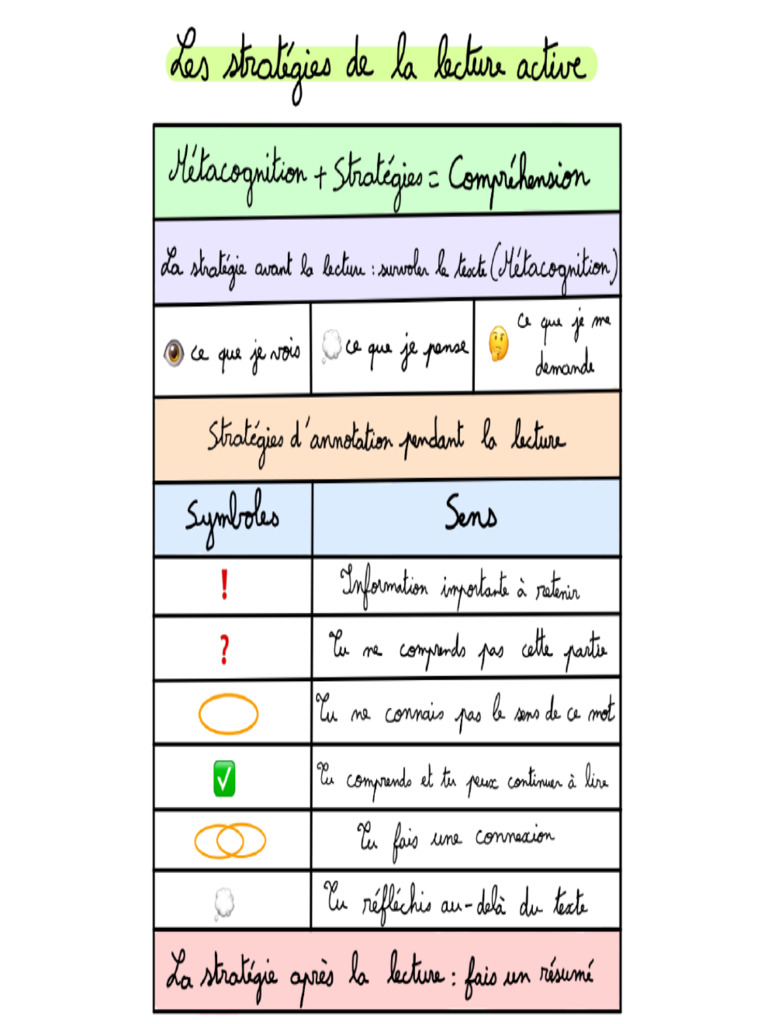 Les stratégies de la lecture active
Métacognition + Stratégies = Compréhension
La stratégie avant la lecture : survoler le texte (Métacognition)
👁️ ce que je vois
💭 ce que je pense
🤔 ce que je me
demande
Stratégies d'annotation pendant la lecture
Symboles
Sens
❗
Information importante à retenir
❓
Tu ne comprends pas cette partie
Tu ne connais pas le sens de ce mot
✅
Tu comprends et tu peux continuer à lire
Tu fais une connexion
💭
Tu réfléchis au-delà du texte
La stratégie après la lecture : fais un résumé